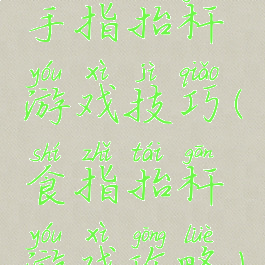 手指抬杆
yóu xì jì qiǎo
游戏技巧(
shí zhǐ tái gān
食指抬杆
yóu xì gōng lüè
游戏攻略)